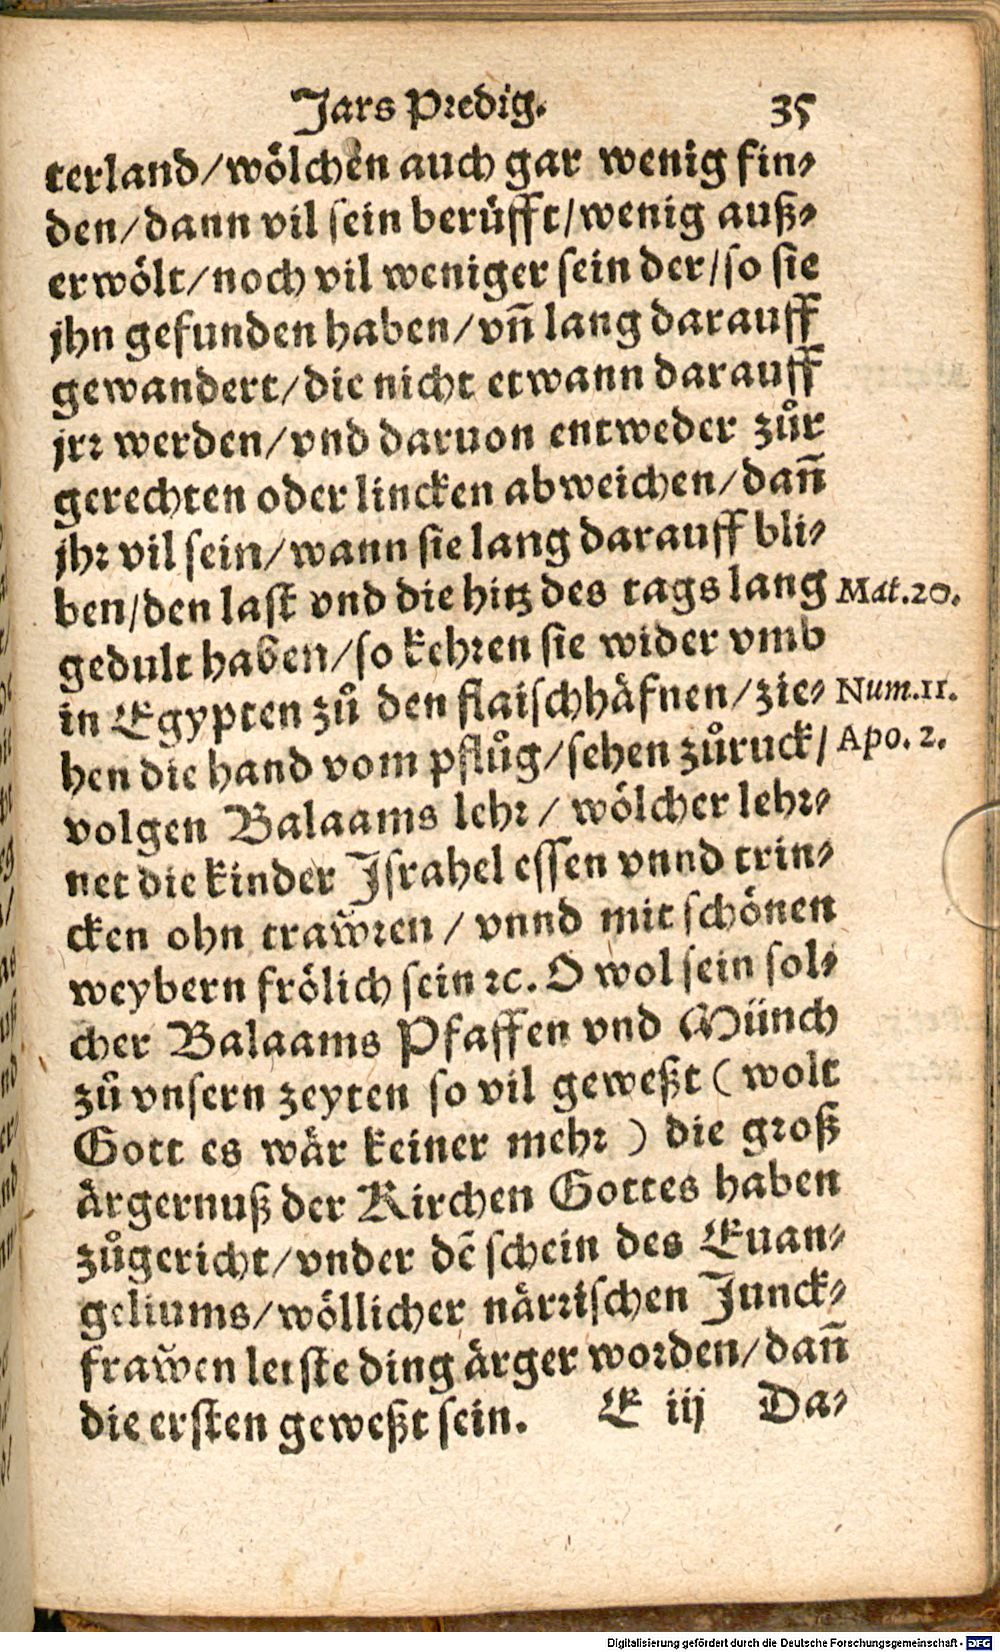 Jars Predig. 35
terland/wölchen auch gar wenig fin⸗
den/dann vil sein berüfft/wenig auß⸗
erwölt/noch vil weniger sein der/so sie
jhn gefunden haben/vñ lang darauff
gewandert/die nicht etwann darauff
jrr werden/vnd daruon entweder zůr
gerechten oder lincken abweichen/dañ
jhr vil sein/wann sie lang darauff bli⸗
ben/den last vnd die hitz des tags lang Mat.20.
gedult haben/so kehren sie wider vmb
in Egypten zů den flaischhäfnen/zie⸗ Num.11.
hen die hand vom pflůg/sehen zůruck/ Apo. 2.
volgen Balaams lehr/wölcher lehr⸗
net die kinder Jsrahel essen vnnd trin⸗
cken ohn traw̆ren/vnnd mit schönen
weybern frölich sein ꝛc. O wol sein sol⸗
cher Balaams Pfaffen vnd Münch
zů vnsern zeyten so vil geweßt (wolt
Gott es wär keiner mehr) die groß
ärgernuß der Kirchen Gottes haben
zůgericht/vnder dē schein des Euan⸗
geliums/wöllicher närrischen Junck⸗
fraw̆en letste ding ärger worden/dañ
die ersten geweßt sein. E iij Da⸗
Digitalisierung gefördert durch die Deutsche Forschungsgemeinschaft - DFG